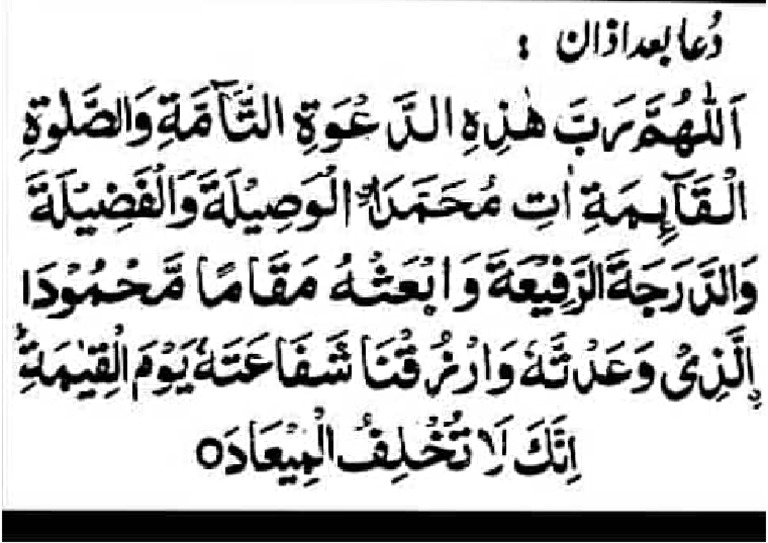 دُعا بعد اذان :
اَللّٰهُمَّ رَبَّ هٰذِهِ الدَّعْوَةِ التَّآمَّةِ وَالصَّلٰوةِ
الْقَآئِمَةِ اٰتِ مُحَمَّدَاۨ الْوَصِيْلَةَ وَالْفَضِيْلَةَ
وَالدَّرَجَةَ الرَّفِيْعَةَ وَابْعَثْهُ مَقَامًا مَّحْمُوْدَا
ۨالَّذِىْ وَعَدْتَّهٗ وَارْزُقْنَا شَفَاعَتَهٗ يَوْمَ الْقِيٰمَةِؕ
اِنَّكَ لَا تُخْلِفُ الْمِيْعَادَ○